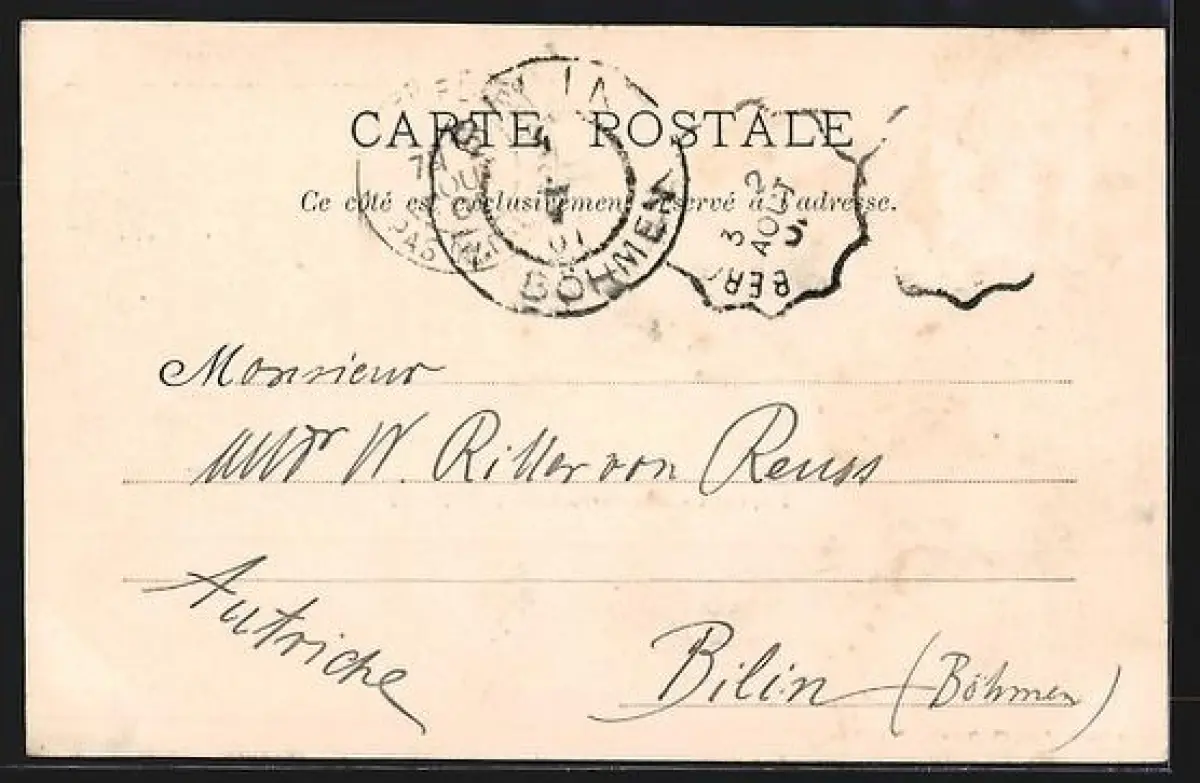 CARTE POSTALE
Ce côté est exclusivement réservé à l'adresse.
BÖHMEN
01
3
2
AOUT
01
BER
Monsieur
W. Ritter von Reuss
Autriche
Bilin (Böhmen)